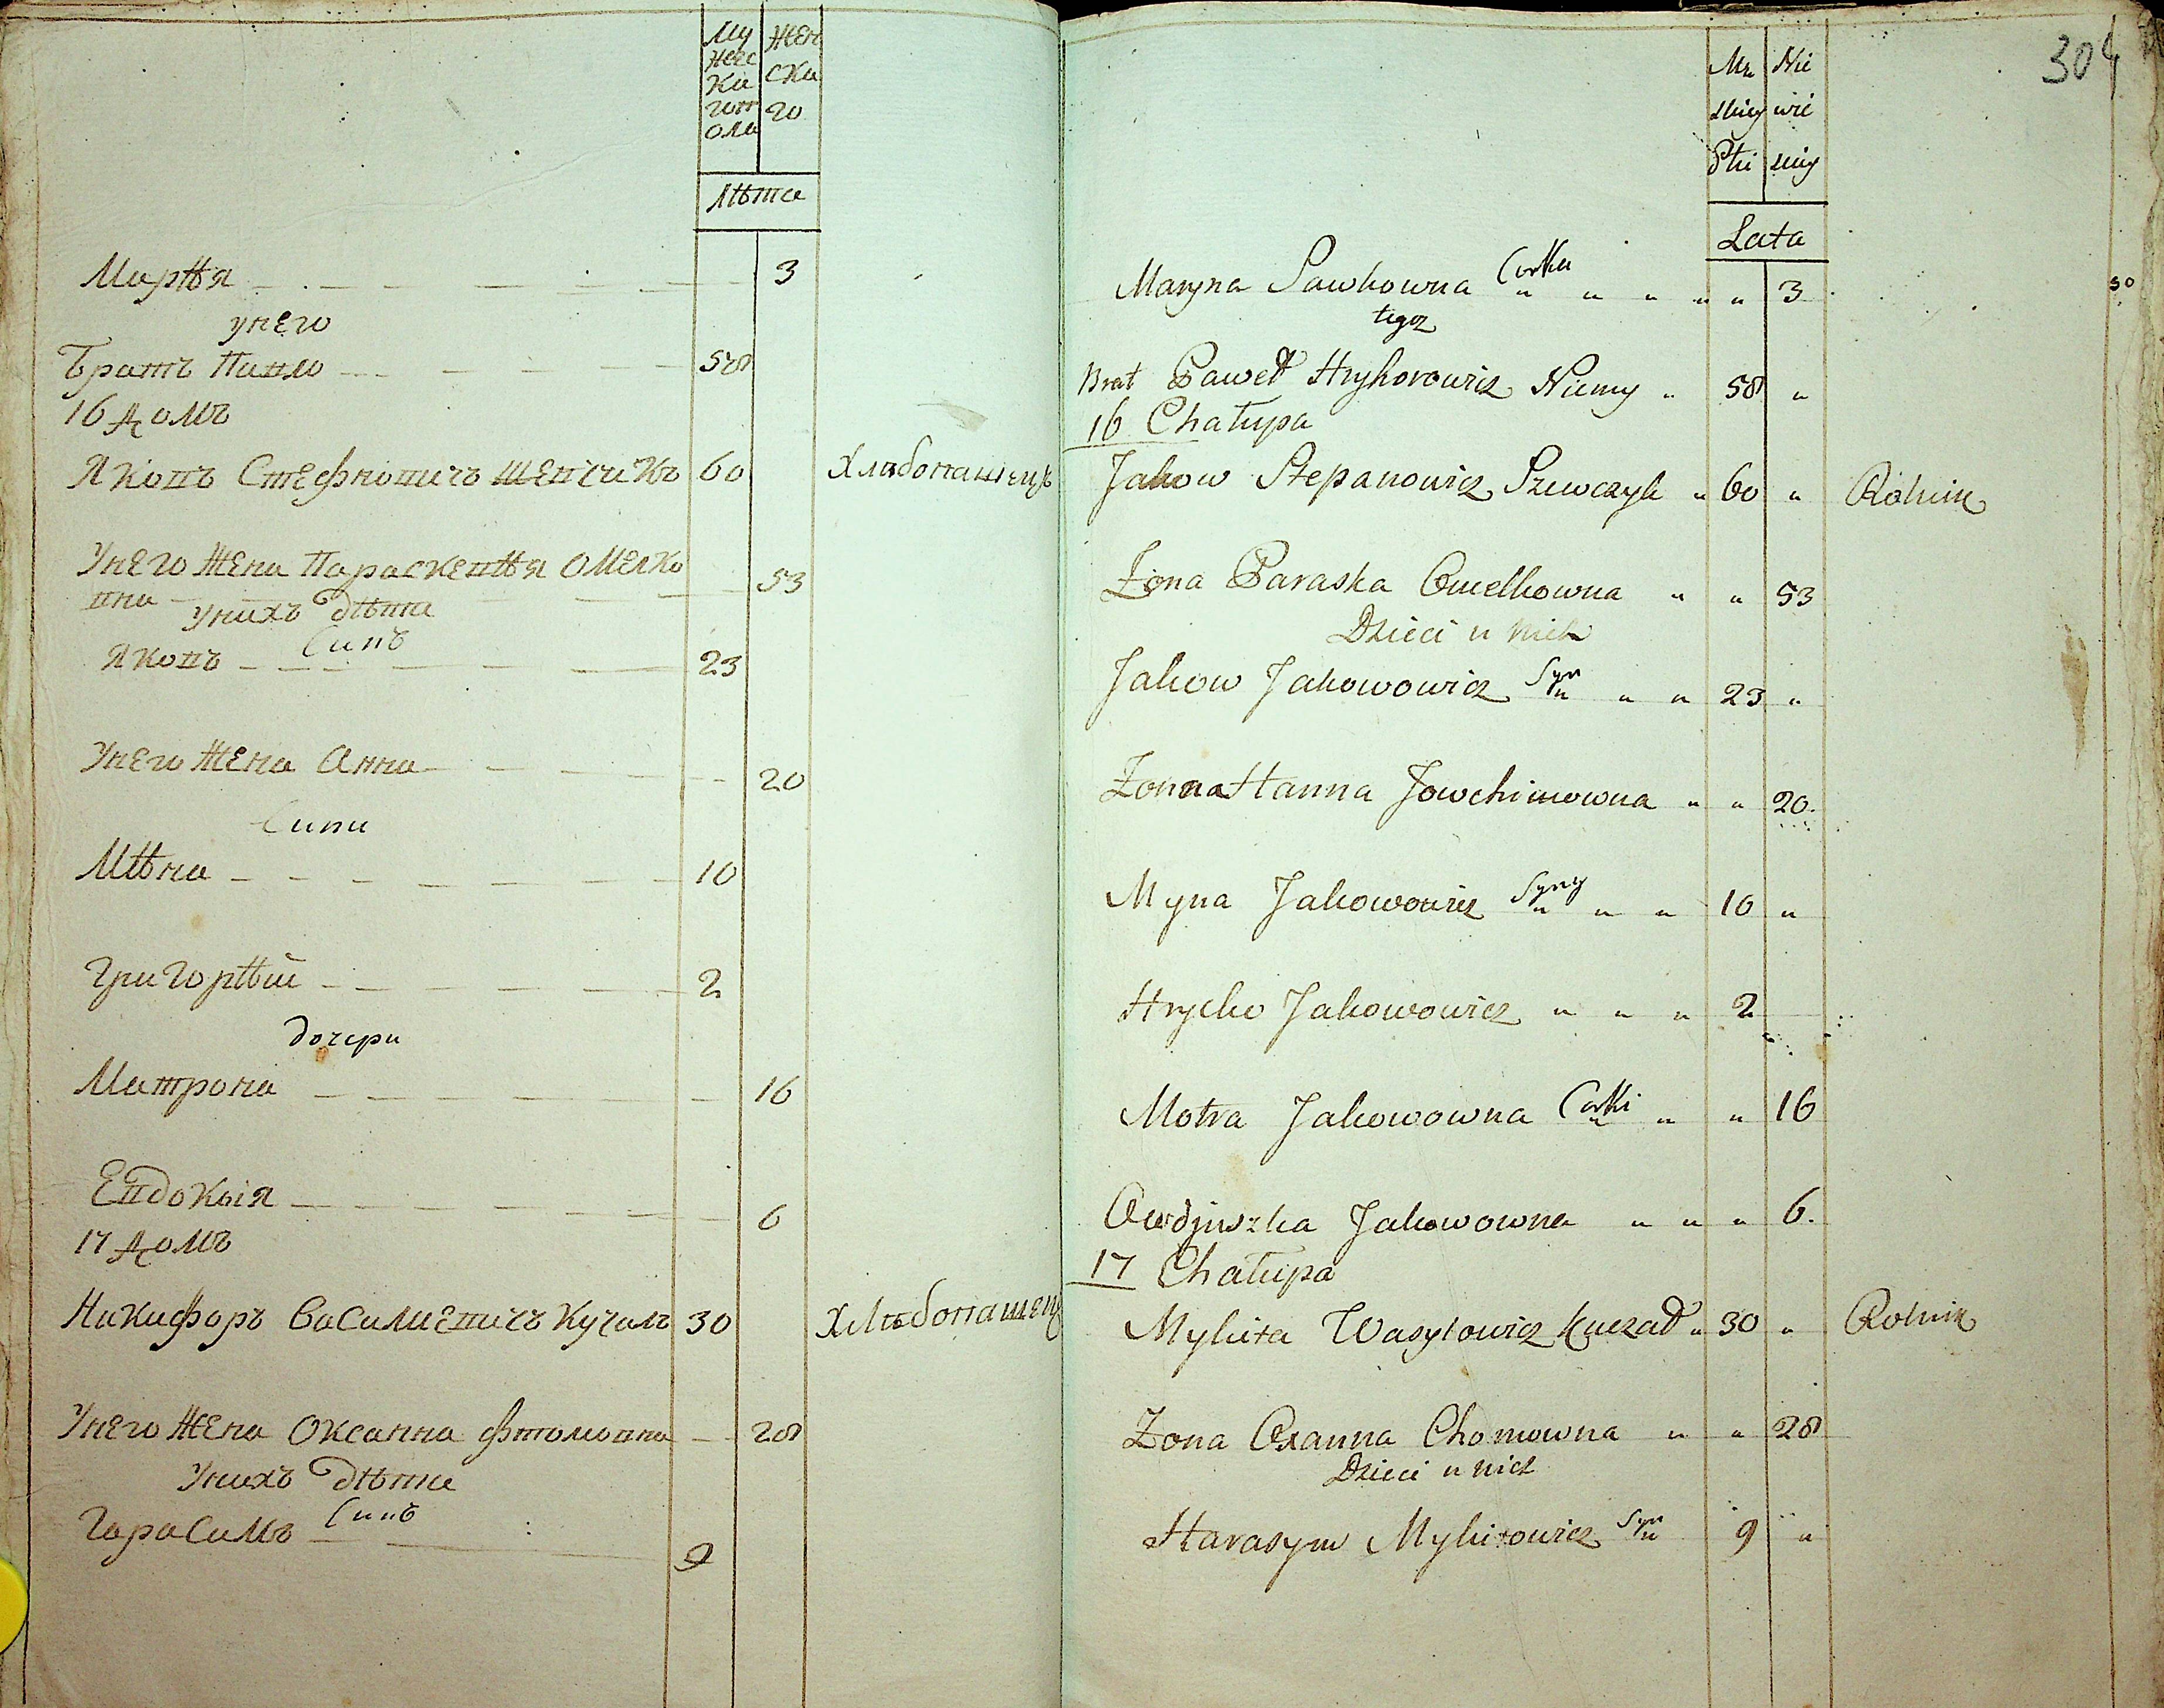 Му жес ка гопола
Женска го
Лѣта
Марѣя 3
унего
Братъ Павло 58
16 домъ
Яковъ Стефновичъ Шевчикъ 60 Хлѣбопашецъ
Унего Жена Параскевѣя Омелко
вна 53
Унихъ дѣти
Синъ
Яковъ 23
Унего Жена Анна 20
Сини
Мѣна 10
Григорѣй 2
дочери
Матрона 16
Евдокыя 6
17 домъ
Никифоръ Василиевичъ Кучалъ 30 Хлѣбопашецъ
Унего Жена Оксанна Фтомовна 28
Унихъ дѣти
Гарасимъ Синъ 9
304
Mę skiey Płci
Nie wie sciey
Lata
50
Maryna Pawkowna Corka " " " " " 3
tegoz
Brat Paweł Hryhorowicz Niemy " 58 "
16 Chałupa
Jakow Stepanowicz Szewczyk " 60 " Rolnik
Żona Paraska Omelkowna " " 53
Dzieci u nich
Jakow Jakowowicz Syn " " " 23 "
Żonna Hanna Jowchimowna " " 20.
Myna Jakowowicz Syny " " " 10 "
Hrycko Jakowowicz " " " 2
Motra Jakowowna Corki " " " 16
Owdjuszka Jakowowna " " " 6.
17 Chałupa
Mykita Wasylowicz Kuczał " 30 " Rolnik
Żona Oxanna Chomowna " " 28
Dzieci u nich
Harasym Mykitowicz Syn " 9 "